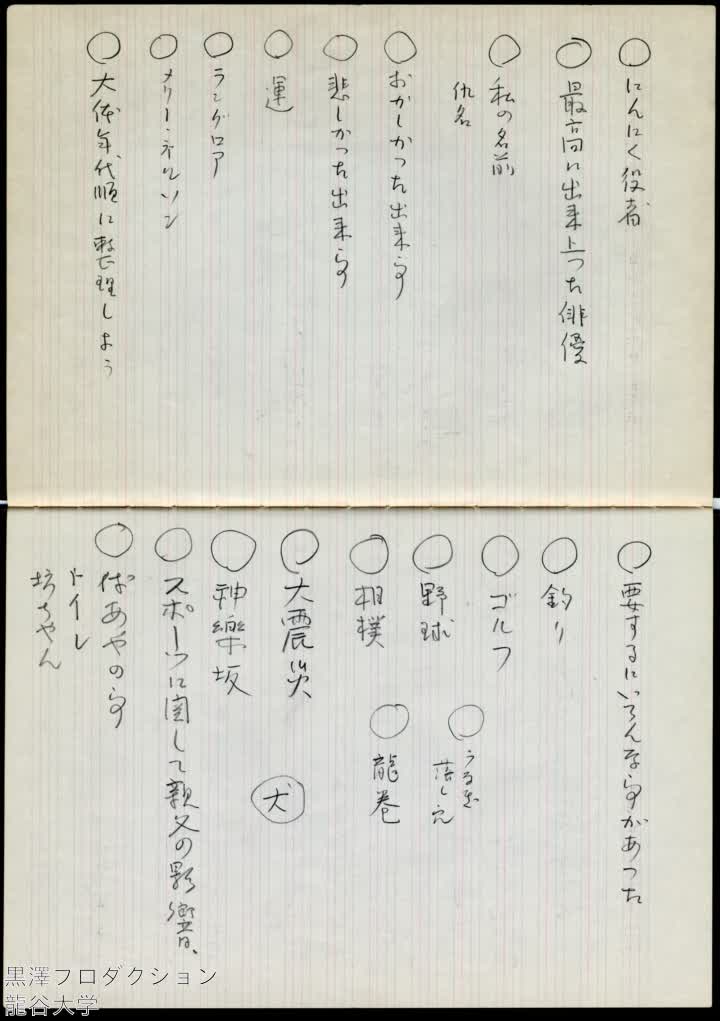 ○にんにく役者
○最高に出来上つた俳優
○私の名前
仇名
○おかしかつた出来事
○悲しかつた出来事
○運
○ラングロア
○メリー・ネルソン
○大体年代順に整理しよう
○要するにいろんな事があつた
○釣り
○ゴルフ
○野球
○相撲
○大震災
○神樂坂
○スポーツに関して親父の影響、
○ばあやの事
トイレ
坊ちやん
○龍巻
犬
黒澤プロダクション
龍谷大学